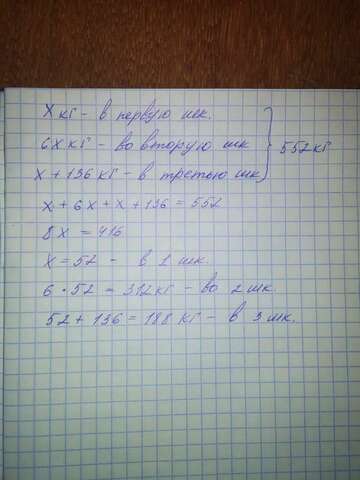 х кг - в первую шк.
6х кг - во вторую шк
х + 136 кг - в третью шк
552 кг
х + 6х + х + 136 = 552
8х = 416
х = 52 - в 1 шк.
6 · 52 = 312 кг - во 2 шк.
52 + 136 = 188 кг - в 3 шк.